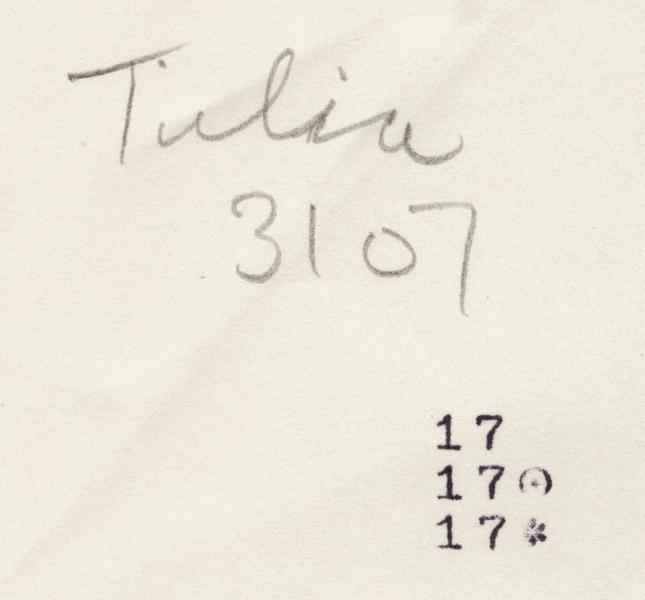 Tulia
3107
17
17⊙
17*